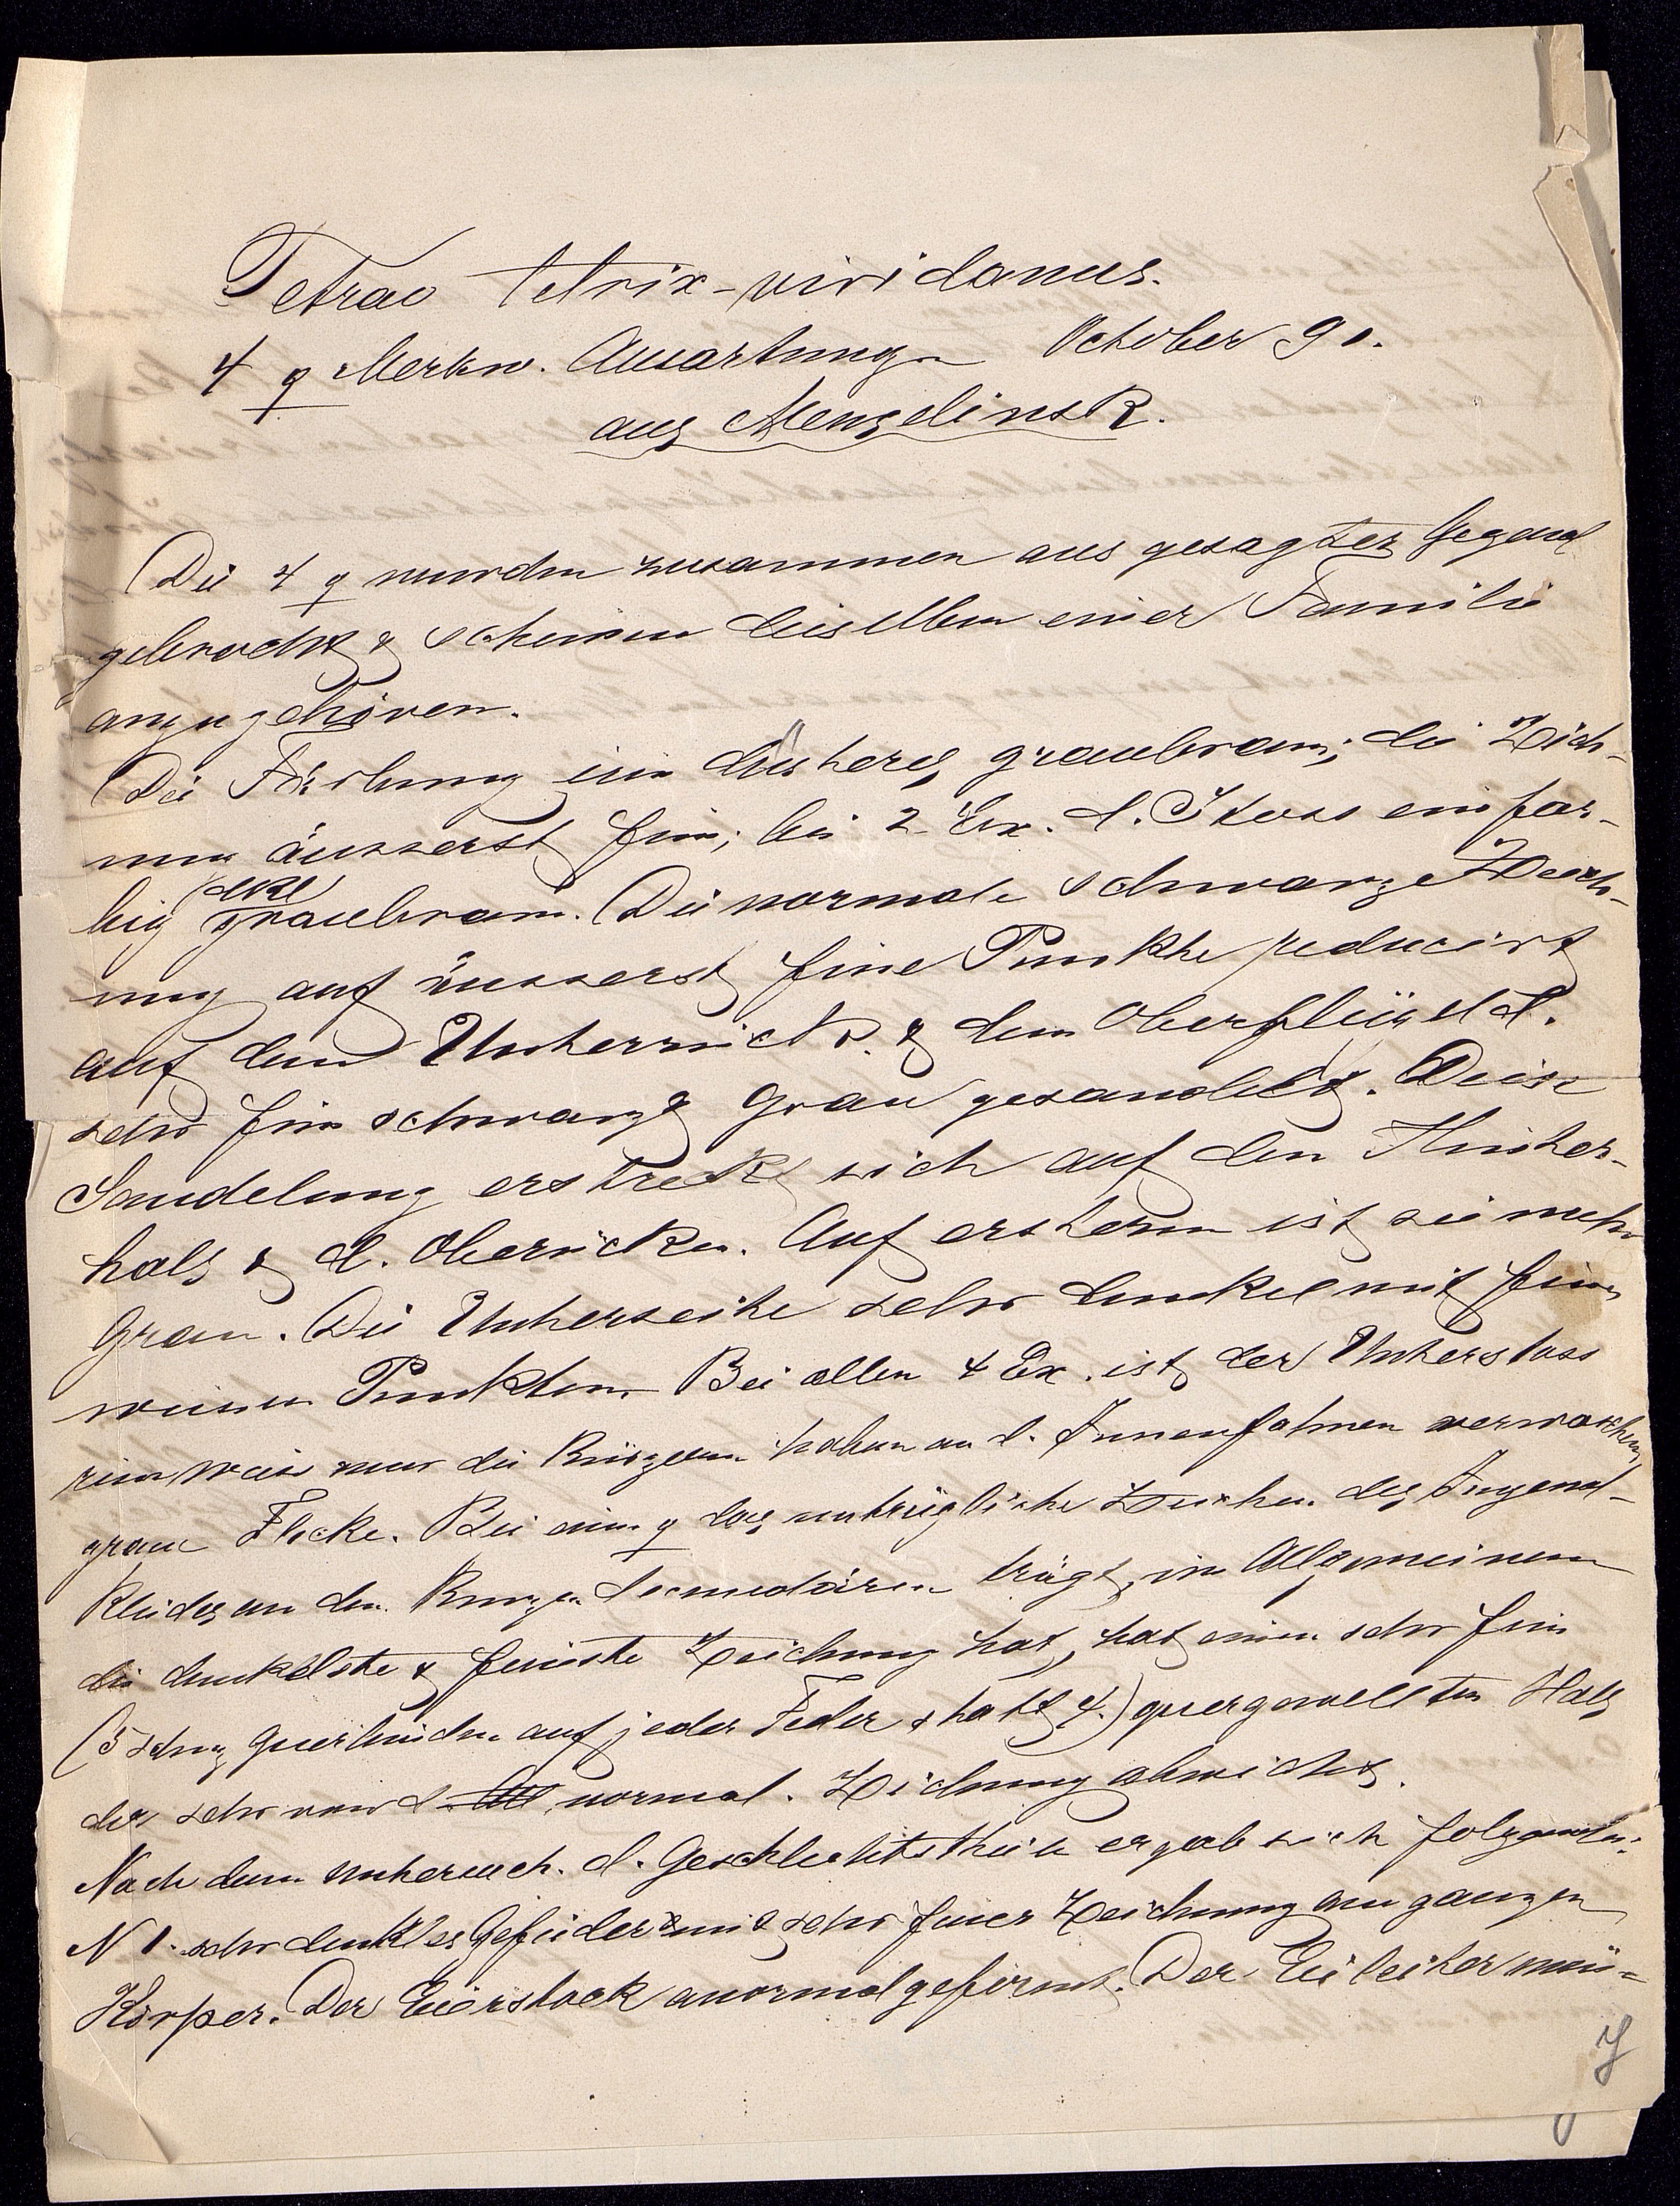 Tetrao tetrix-viridanus.
4 ♀ Merkw. Ausartung. October 90.
aus Menzelinsk.
Die 4 ♀ wurden zusammen aus gesagter Gegend
gebracht & scheinen dieselben einer Familie
anzugehören.
Die Färbung ein düsteres graubraun; die Zeich-
nun äusserst fein; bei 2 Ex. d. Stoss einfar-
big dkl graubraun. Die normale schwarze Zeich-
nung auf äusserst feine Punkte reducirt
auf dem Unterrück. & dem Oberflügeld.
sehr fein schwarz & grau gesandelt. Diese
Sandelung erstreckt sich auf den Hinter-
hals & d. Oberrücken. Auf ersterem ist sie mehr
grau. Die Unterseite sehr dunkel mit feinen
weissen Punkten. Bei allen 4 Ex. ist der Unterstoss
rein weiss nur die kürzeren haben an d. Innenfahnen verwaschene
graue Flecke. Bei einem ♀ das untrügliche Zeichen des Jugend-
kleides an den kurzen Secundären trägt, im Allgemeinen
die dunkelste & feinste Zeichnung hat, hat einen sehr fein
(5 schwz Querbinden auf jeder Feder statt 4.) quergewellten Hals
der sehr von d. normal. Zeichnung abweicht.
Nach dem Untersuch. d. Geschlechtstheile ergab sich folgendes:
N 1. sehr dunkles Gefieder mit sehr feiner Zeichnung am ganzen
Körper. Der Eierstock anormal geformt. Der Eileiter